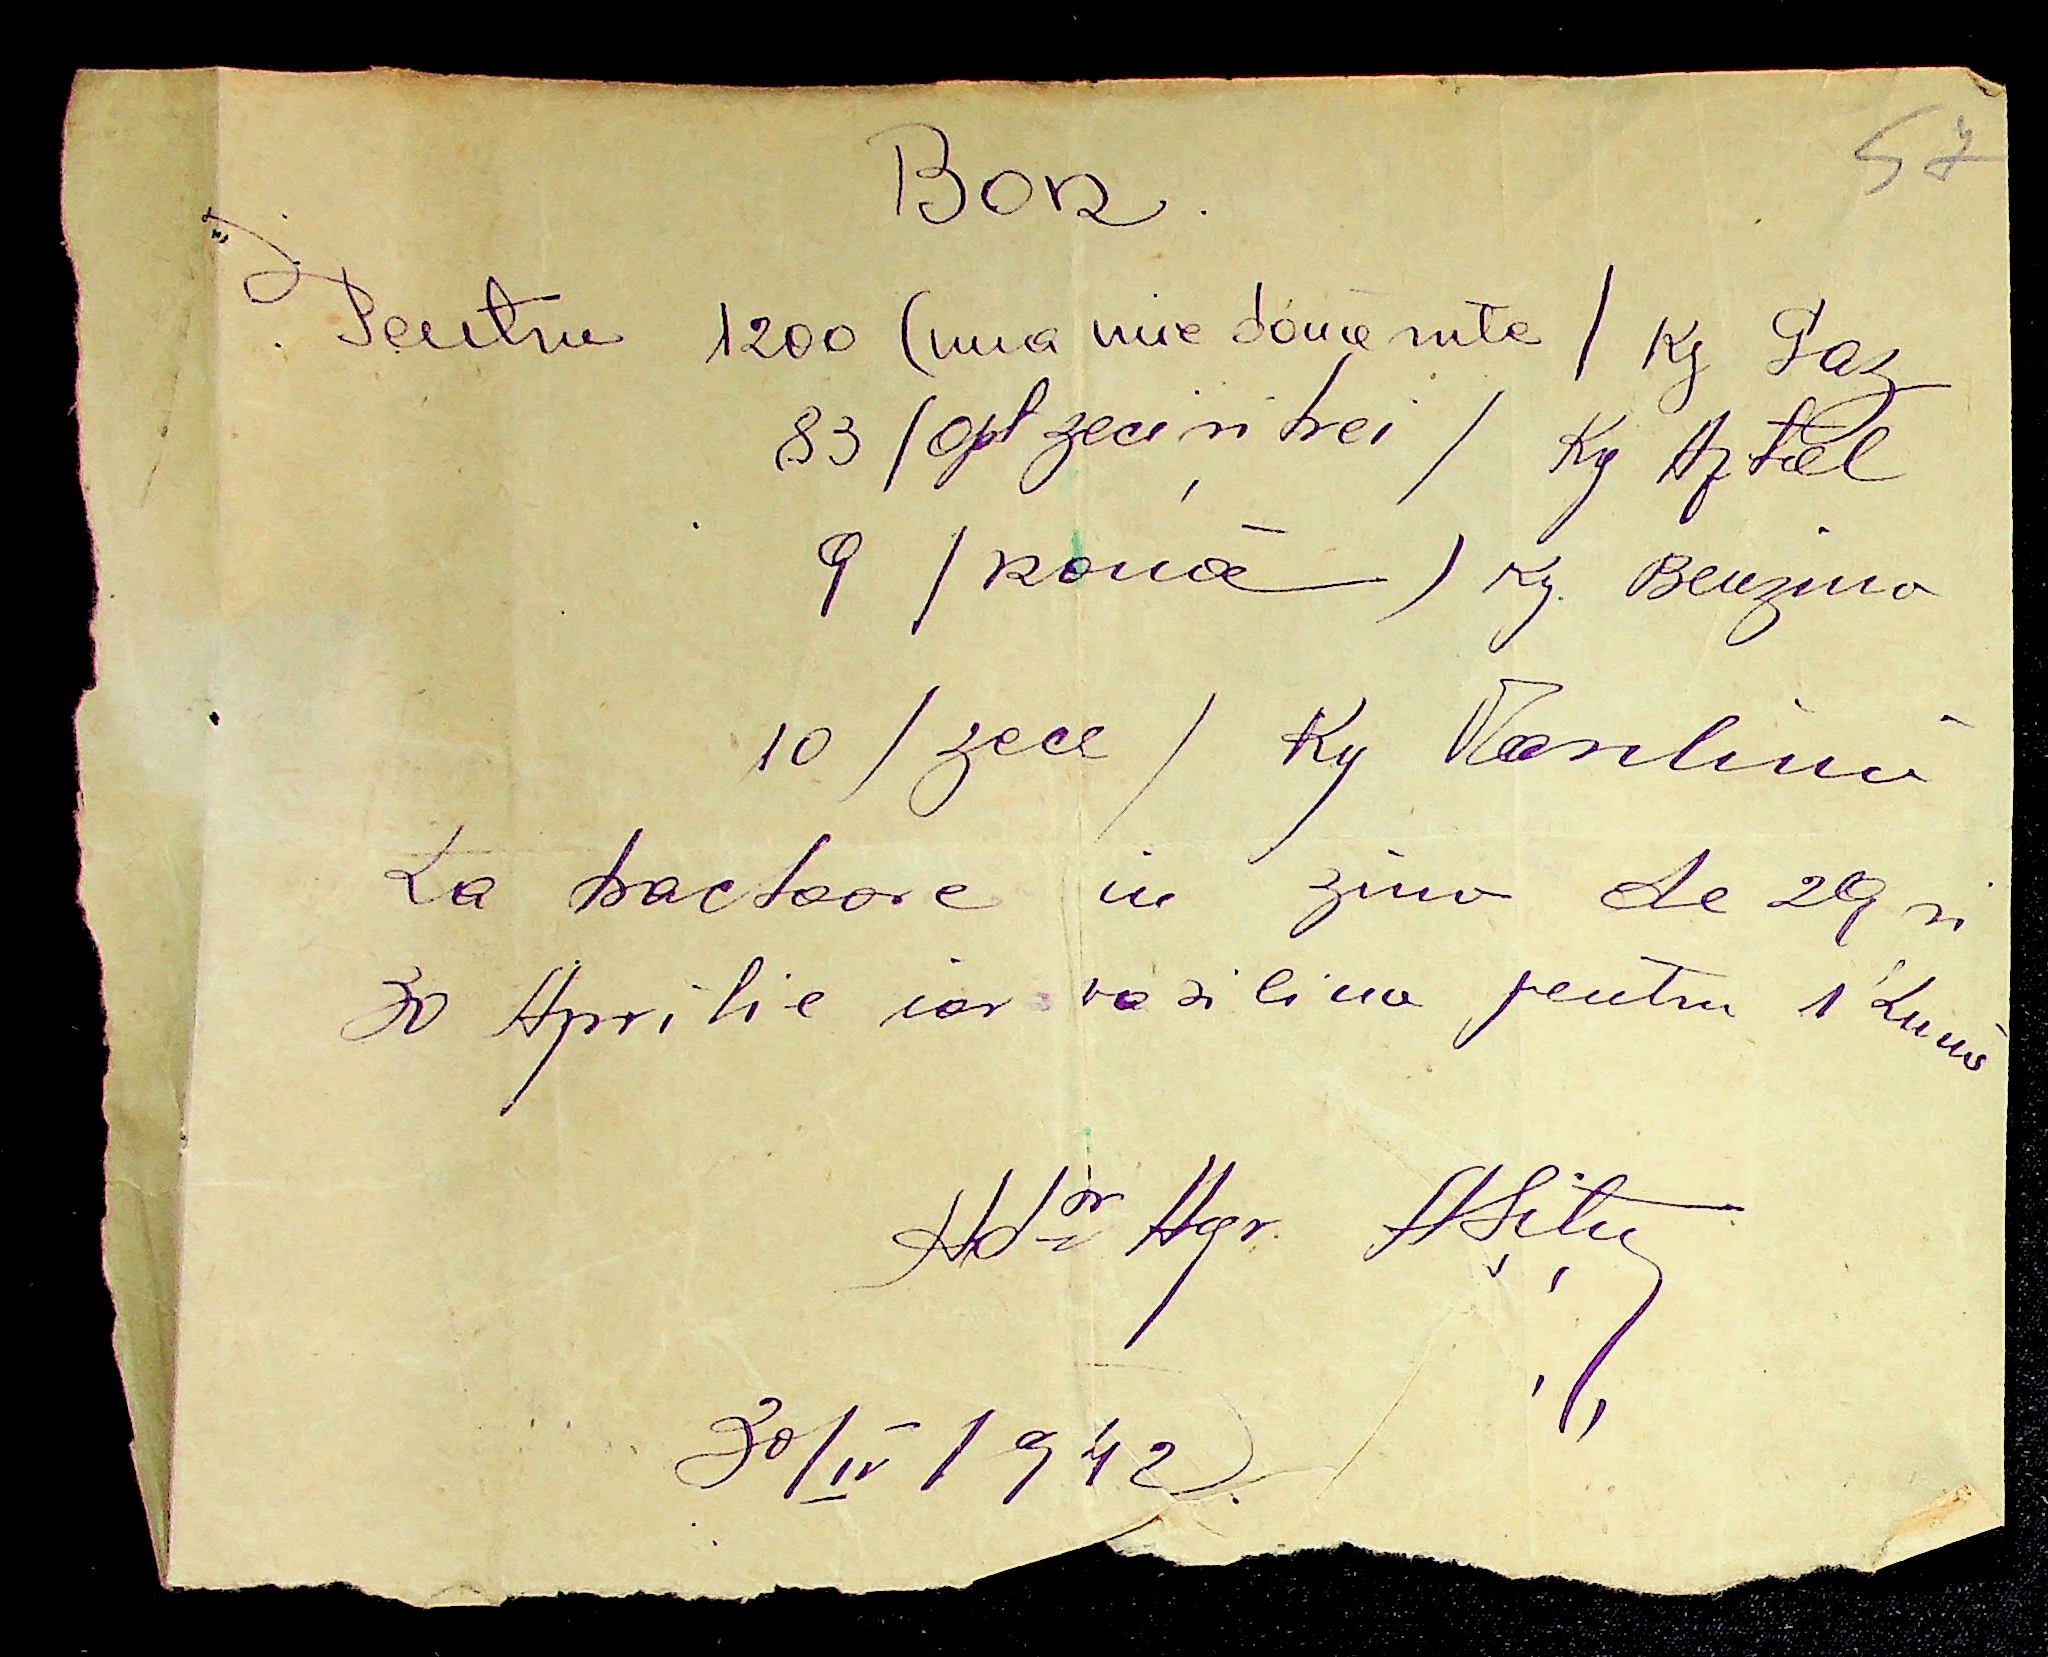 57
Bon.
Pentru 1200 (una mie două sute / Kg Gaz
83 / opt zeci si trei / Kg
9 / nouă ) Kg. Benzina
10 / zece / Kg Vasilină
La tractoare in zina de 29 si
30 Aprilie iar vasilina pentru 1 Lună
Ad-or Agr.
30/IV/942.